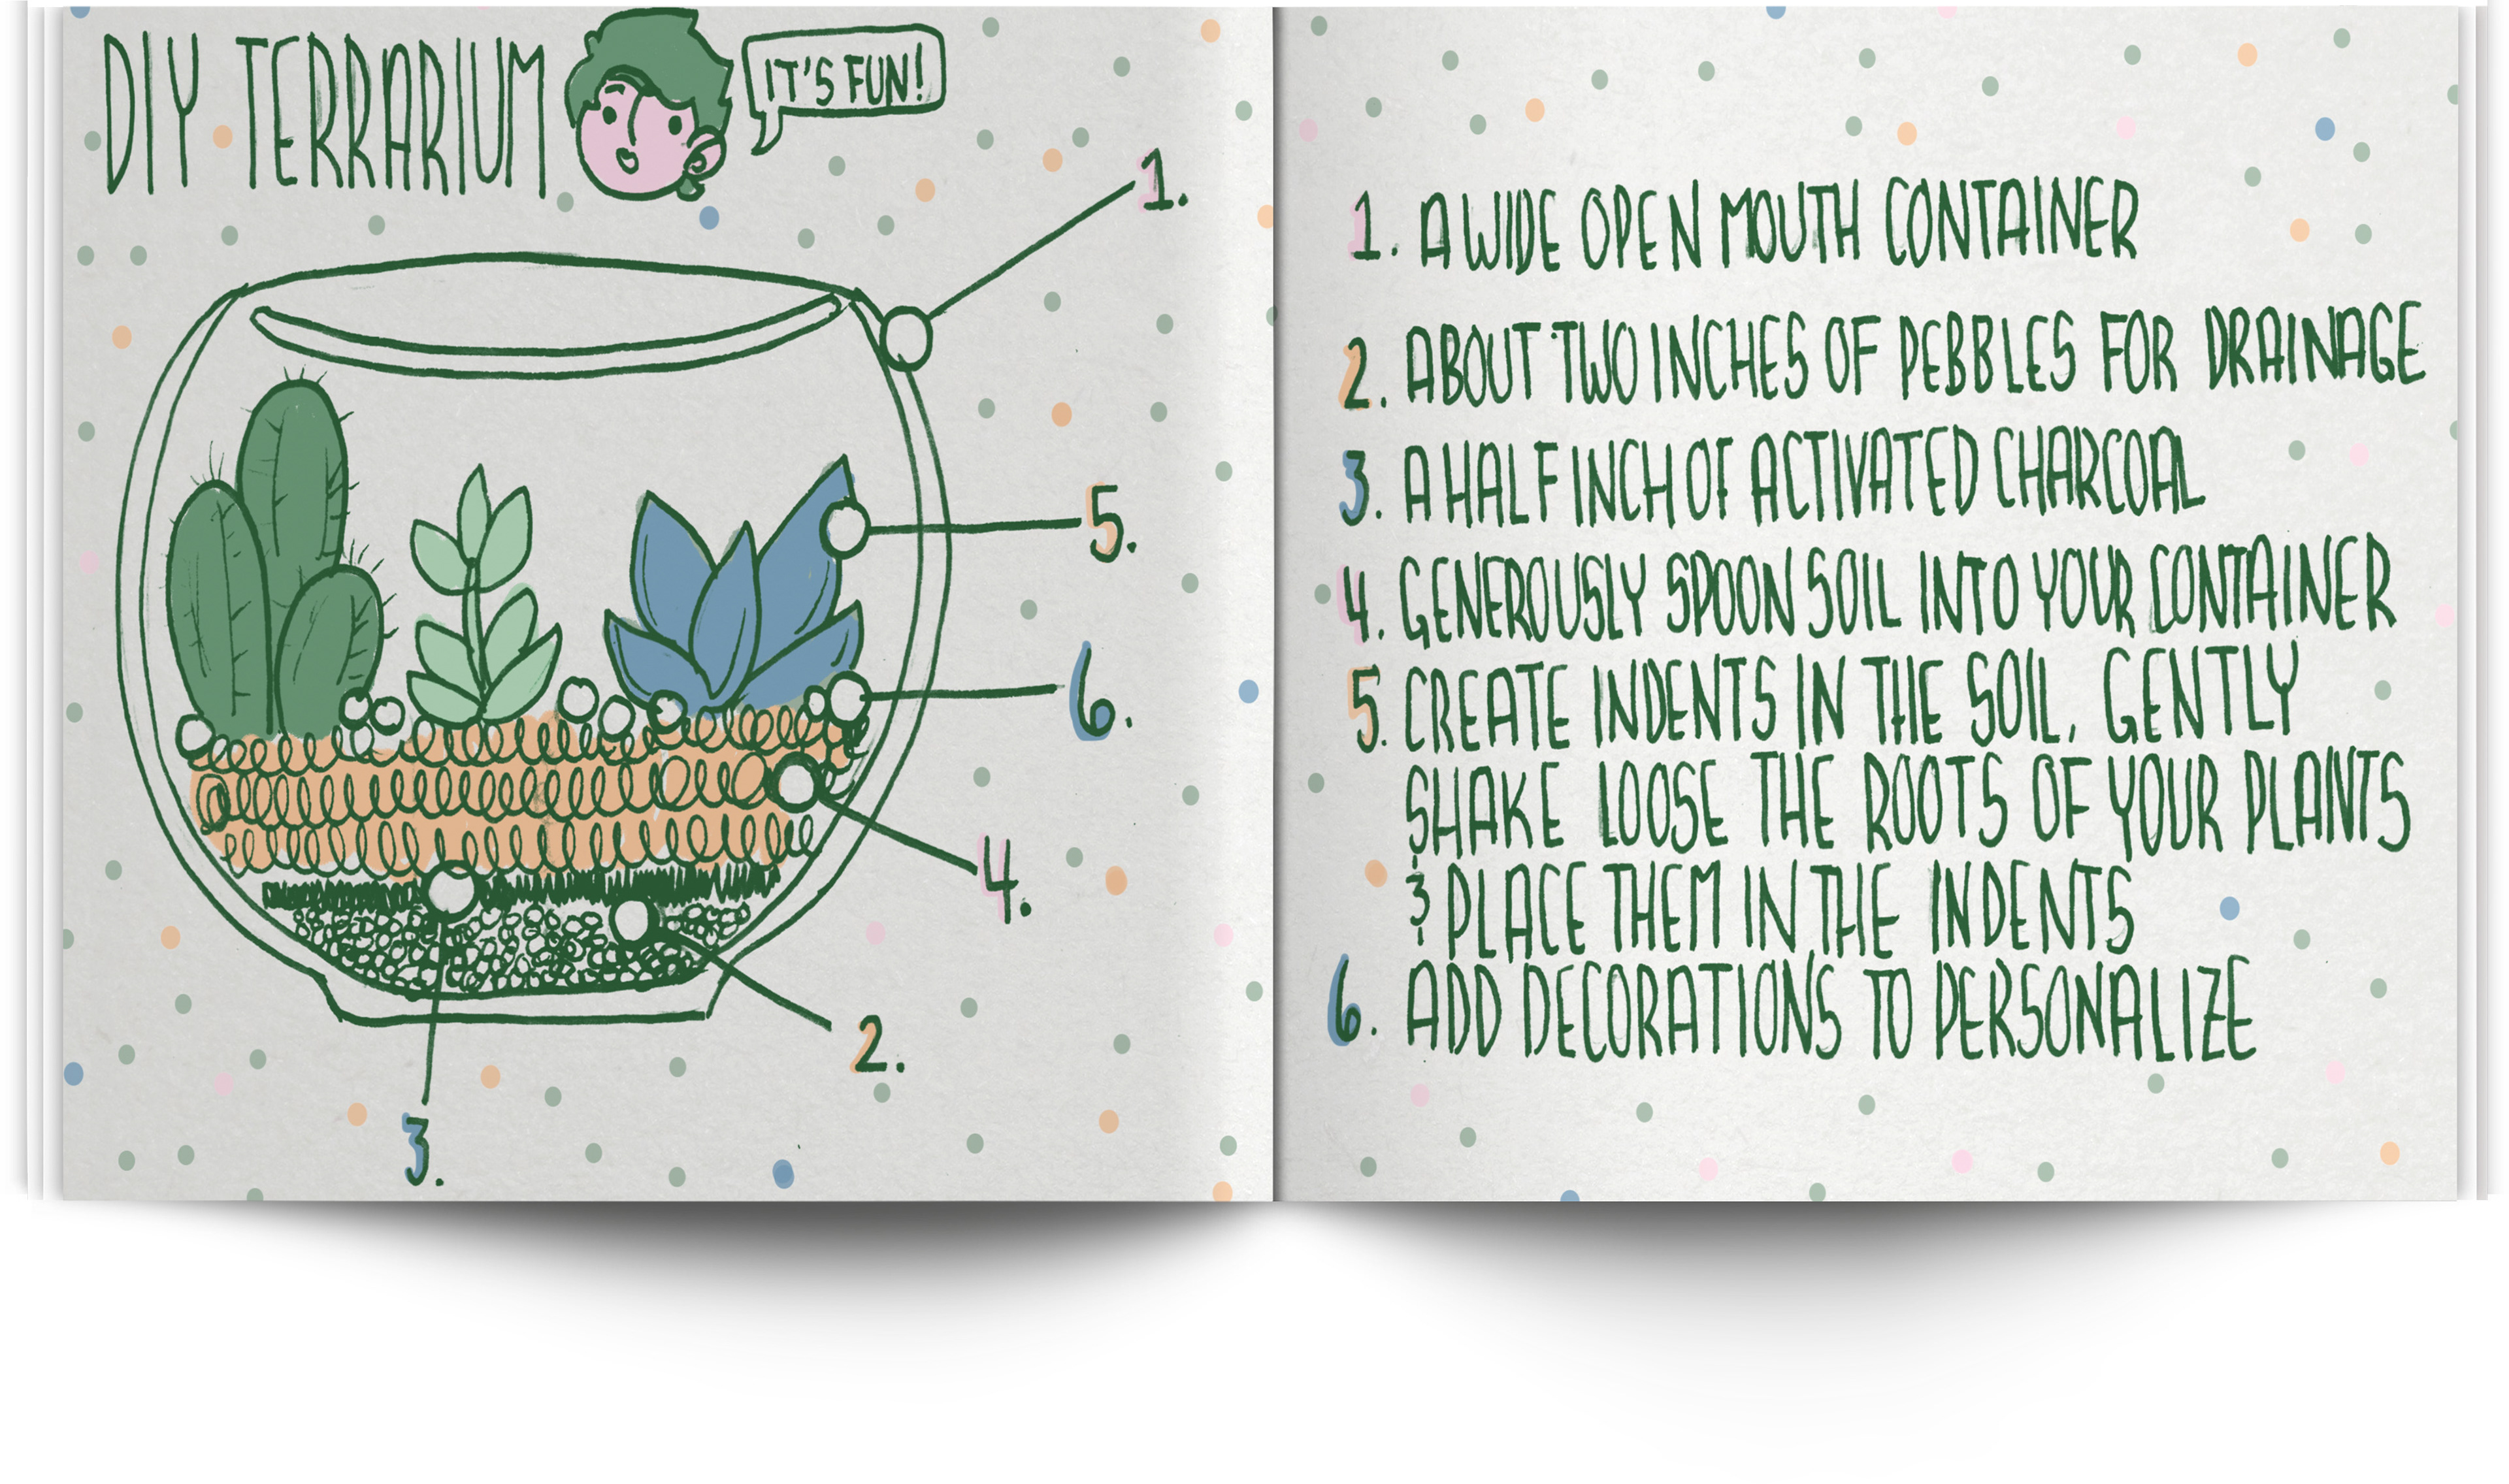 DIY TERRARIUM
IT'S FUN!
1.
5.
6.
4.
2.
3.
1. A WIDE OPEN MOUTH CONTAINER
2. ABOUT TWO INCHES OF PEBBLES FOR DRAINAGE
3. A HALF INCH OF ACTIVATED CHARCOAL
4. GENEROUSLY SPOON SOIL INTO YOUR CONTAINER
5. CREATE INDENTS IN THE SOIL, GENTLY
SHAKE LOOSE THE ROOTS OF YOUR PLANTS
& PLACE THEM IN THE INDENTS
6. ADD DECORATIONS TO PERSONALIZE